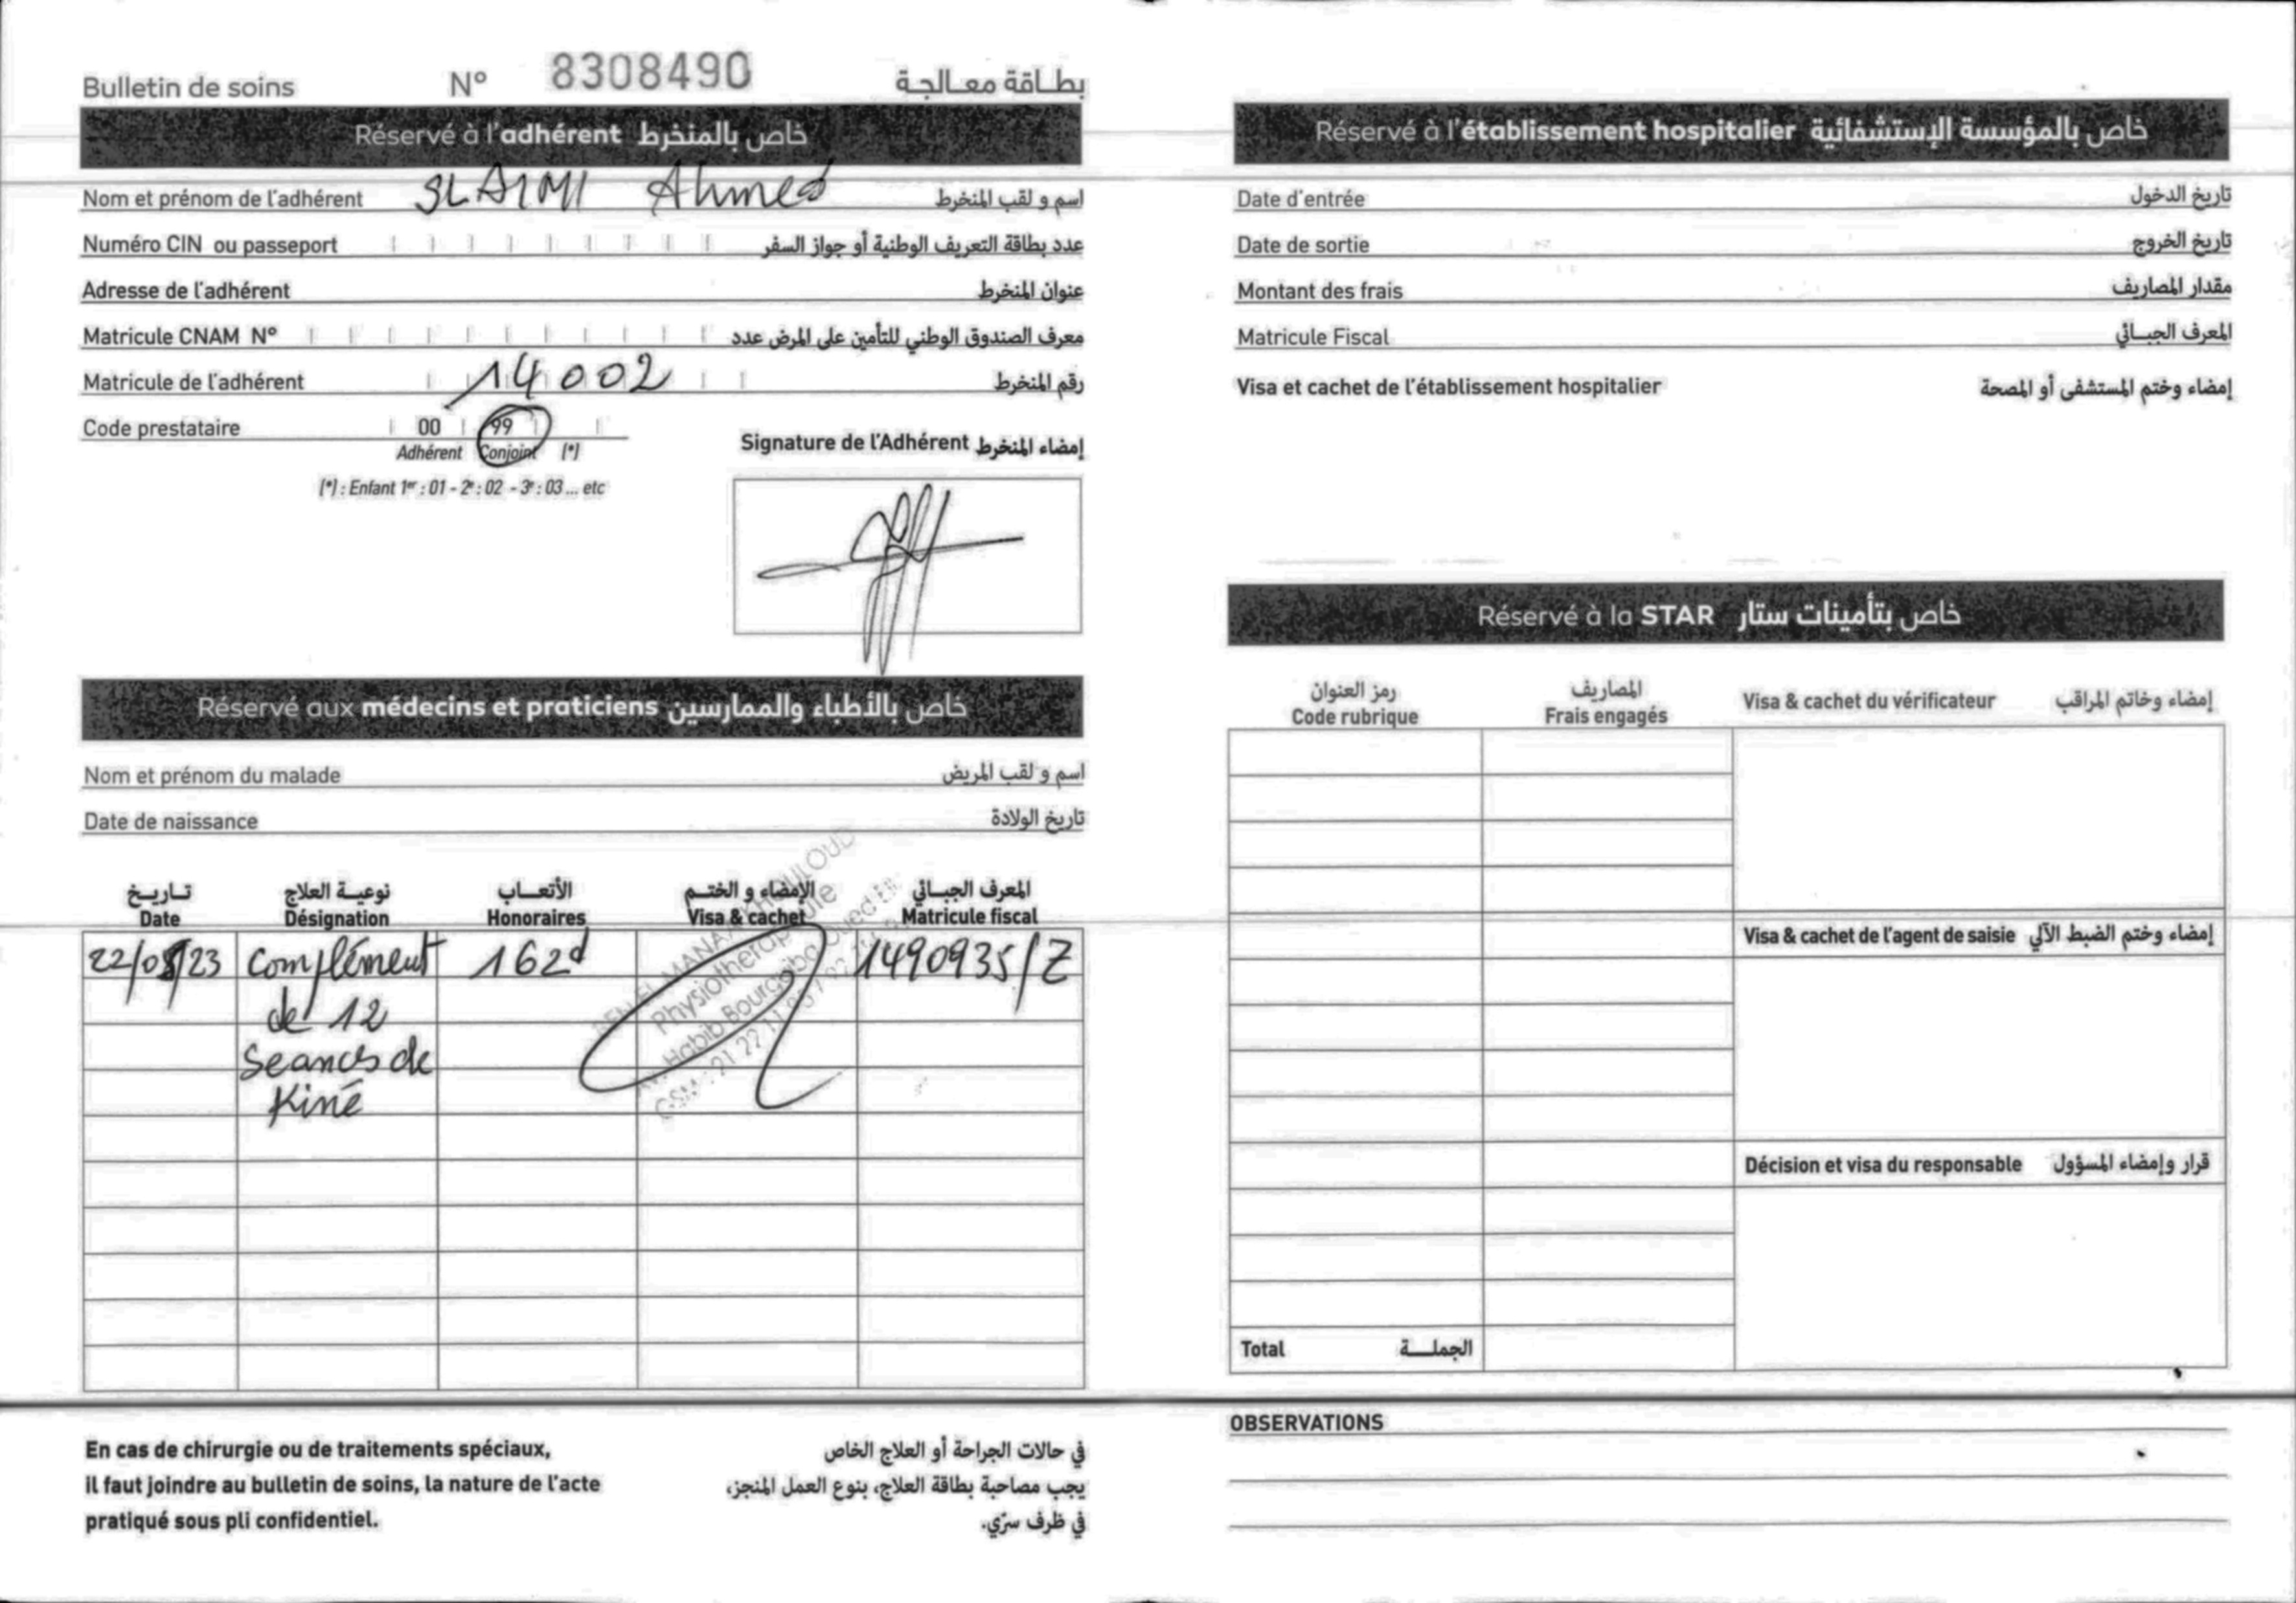 Bulletin de soins N° 8308490 بطاقة معالجة
Réservé à l'adhérent خاص بالمنخرط
Nom et prénom de l'adhérent SLAIMI Ahmed اسم و لقب المنخرط
Numéro CIN ou passeport عدد بطاقة التعريف الوطنية أو جواز السفر
Adresse de l'adhérent عنوان المنخرط
Matricule CNAM N° معرف الصندوق الوطني للتأمين على المرض عدد
Matricule de l'adhérent 14002 رقم المنخرط
Code prestataire 00 99
Adhérent Conjoint (*)
(*) : Enfant 1er : 01 - 2e : 02 - 3e : 03 ... etc
Signature de l'Adhérent إمضاء المنخرط
Réservé aux médecins et praticiens خاص بالأطباء والممارسين
Nom et prénom du malade اسم و لقب المريض
Date de naissance تاريخ الولادة
تاريخ نوعية العلاج الأتعاب الإمضاء و الختم المعرف الجبائي
Date Désignation Honoraires Visa & cachet Matricule fiscal
22/08/23 Complément 162d 1490935/Z
de 12
Seances de
Kiné
Physiothérapeute
Habib Bourguiba Oued
En cas de chirurgie ou de traitements spéciaux,
il faut joindre au bulletin de soins, la nature de l'acte
pratiqué sous pli confidentiel.
في حالات الجراحة أو العلاج الخاص
يجب مصاحبة بطاقة العلاج، بنوع العمل المنجز،
في ظرف سرّي.
Réservé à l'établissement hospitalier خاص بالمؤسسة الإستشفائية
Date d'entrée تاريخ الدخول
Date de sortie تاريخ الخروج
Montant des frais مقدار المصاريف
Matricule Fiscal المعرف الجبائي
Visa et cachet de l'établissement hospitalier إمضاء وختم المستشفى أو المصحة
Réservé à la STAR خاص بتأمينات ستار
رمز العنوان المصاريف
Code rubrique Frais engagés Visa & cachet du vérificateur إمضاء وخاتم المراقب
Visa & cachet de l'agent de saisie إمضاء وختم الضبط الآلي
Décision et visa du responsable قرار وإمضاء المسؤول
Total الجملة
OBSERVATIONS